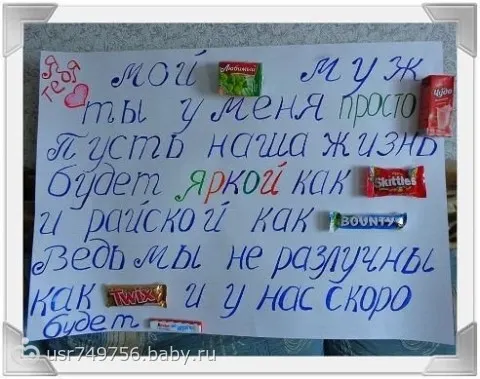 Я ♥ тебя
мой Любимый муж
ты у меня просто Чудо
Пусть наша жизнь
будет яркой как Skittles
и райской как BOUNTY
Ведь мы не разлучны
как Twix и у нас скоро
будет
usr749756.baby.ru